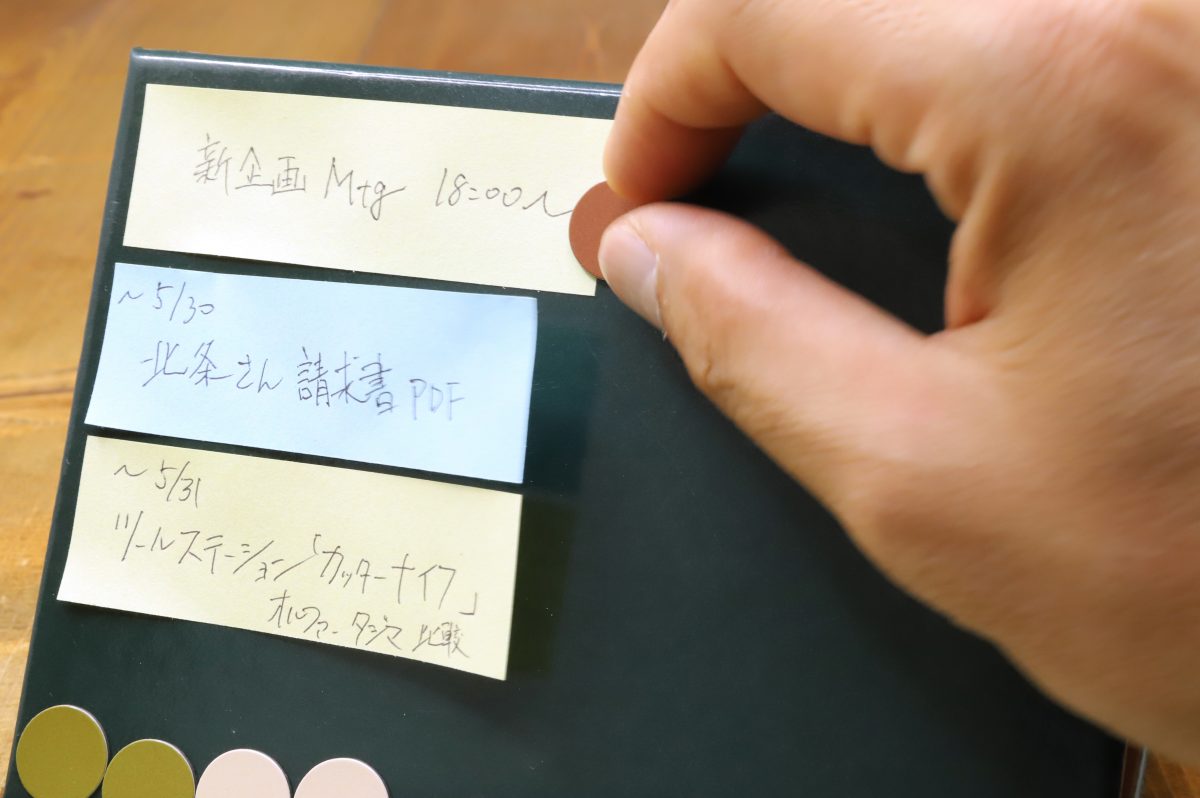 新企画 Mtg 18:00~
~5/30
北条さん 請求書 PDF
~5/31
ツールステーション「カッターナイフ」
オルファ タジマ 比較